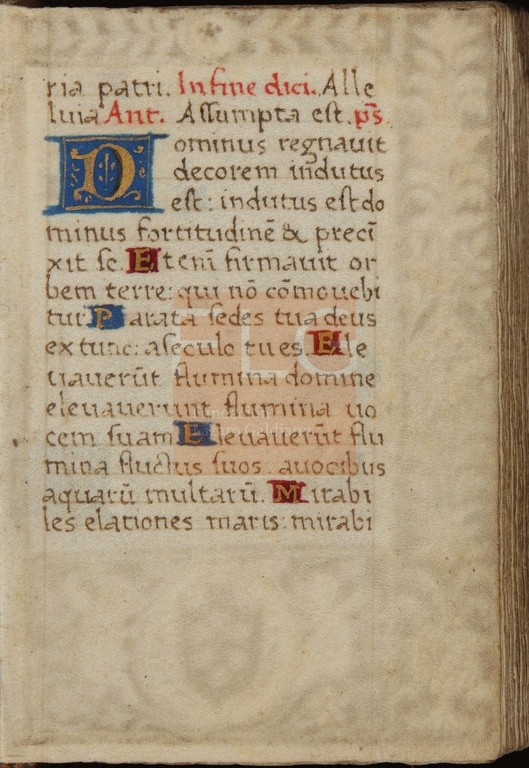 ria patri. In fine dici. Alle
luia Ant. Assumpta est. ps̃
Dominus regnauit
decorem indutus
est: indutus est do
minus fortitudinē & preci̅
xit se. Etenī firmauit or
bem terre: qui nō cōmouebi
tur. Parata sedes tua deus
ex tunc: aseculo tu es. Ele
uauerūt flumina domine
eleuauerunt flumina uo
cem suam Eleuauerūt flu
mina fluctus suos. auocibus
aquarū multarū. Mirabi
les elationes maris: mirabi